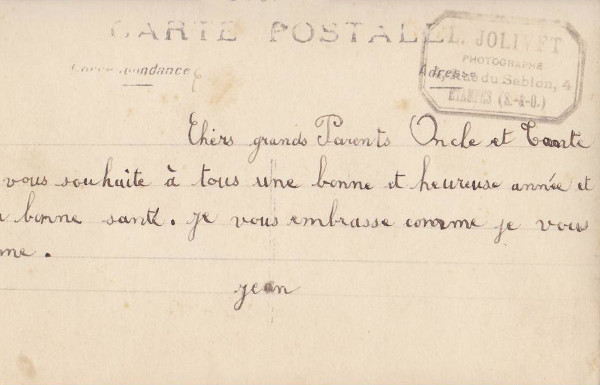 CARTE POSTALE
Correspondance
L. JOLIVET
PHOTOGRAPHE
Adresse
Rue du Sablon, 4
ETAMPES (S.-&-O.)
Chers grands Parents Oncle et Tante
vous souhaite à tous une bonne et heureuse année et
bonne santé. je vous embrasse comme je vous
me.
jean